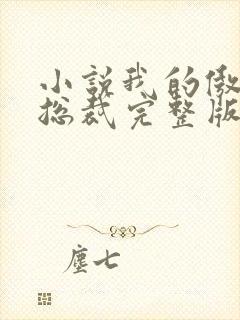 小説我的傲
総裁完整版
塵七